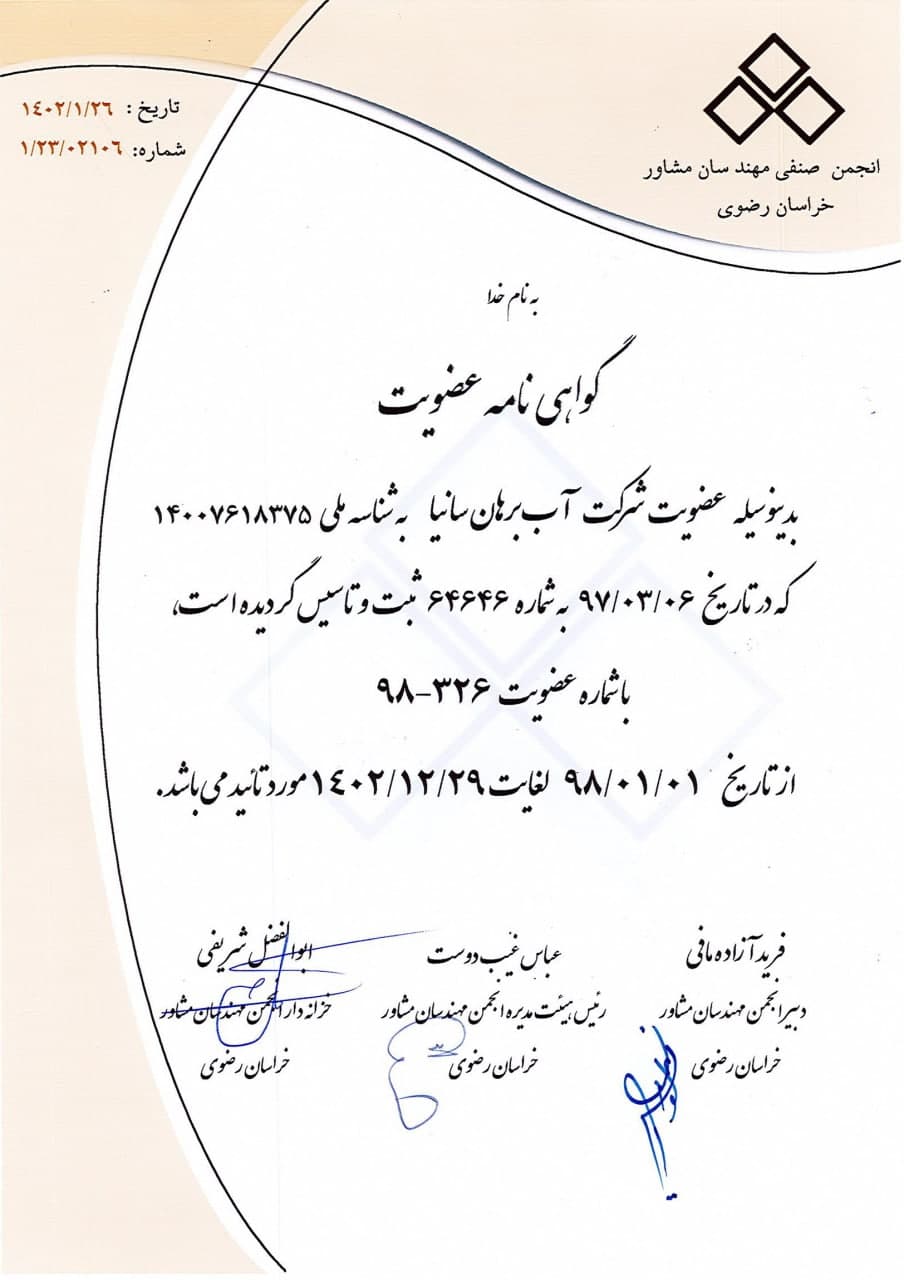 انجمن صنفی مهندسان مشاور
خراسان رضوی
تاریخ: ۱٤۰۲/۱/۲٦
شماره: ۱/۲۳/۰۲۱۰٦
به نام خدا
گواهی نامه عضویت
بدینوسیله عضویت شرکت آب برهان سانیا به شناسه ملی ۱۴۰۰۷۶۱۸۳۷۵
که در تاریخ ۹۷/۰۳/۰۶ به شماره ۶۴۶۴۶ ثبت و تاسیس گردیده است،
با شماره عضویت ۳۲۶-۹۸
از تاریخ ۹۸/۰۱/۰۱ لغایت ۱٤۰۲/۱۲/۲۹ مورد تائید می باشد.
فرید آزاده مافی
دبیر انجمن مهندسان مشاور
خراسان رضوی
عباس غیب دوست
رئیس هیئت مدیره انجمن مهندسان مشاور
خراسان رضوی
ابوالفضل شریفی
خزانه دار انجمن مهندسان مشاور
خراسان رضوی